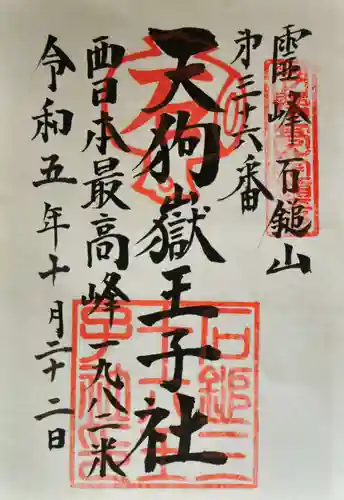 靈峰石鎚山
第三十六番
天狗嶽王子社
西日本最高峰一九八二米
令和五年十月二十二日